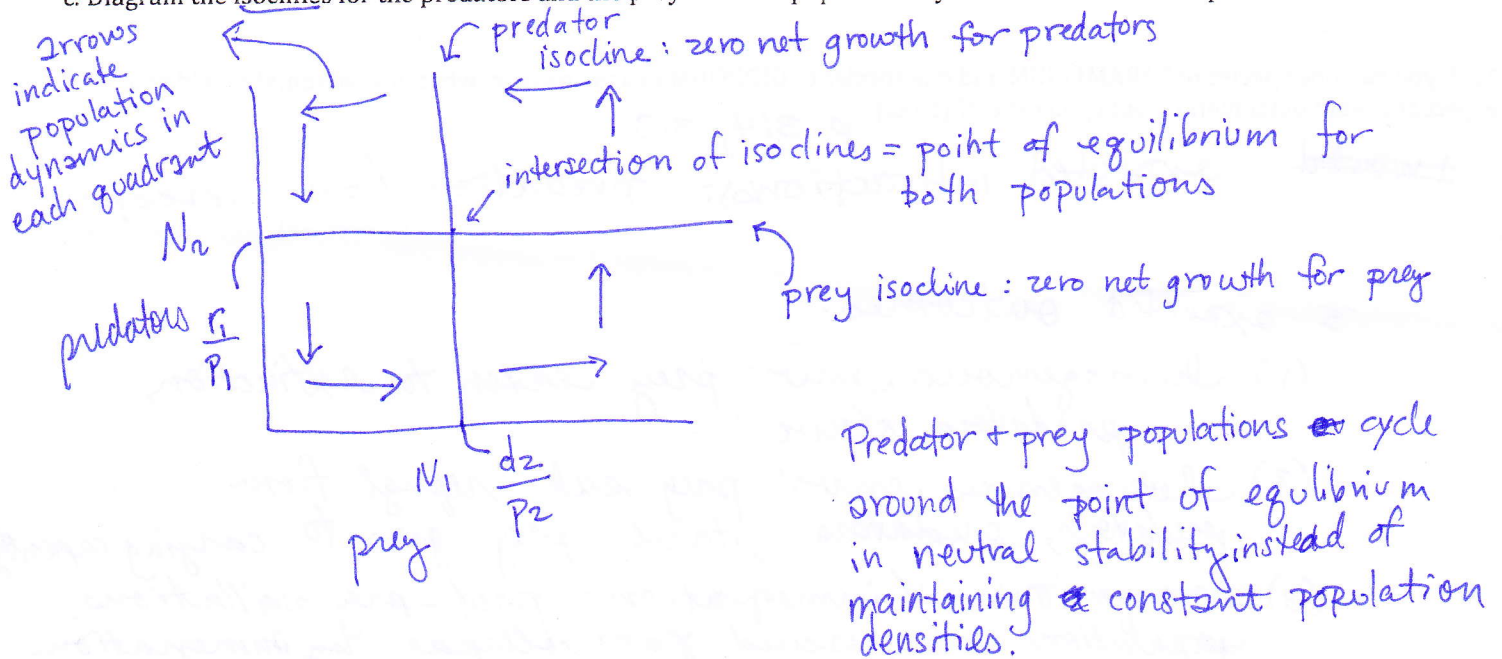 arrows
indicate
population
dynamics in
each quadrant
predator
isocline : zero net growth for predators
intersection of isoclines = point of equilibrium for
both populations
N2
prey isocline : zero net growth for prey
predators r1
P1
N1 d2
P2
prey
Predator + prey populations cycle
around the point of equlibrium
in neutral stability instead of
maintaining constant population
densities.